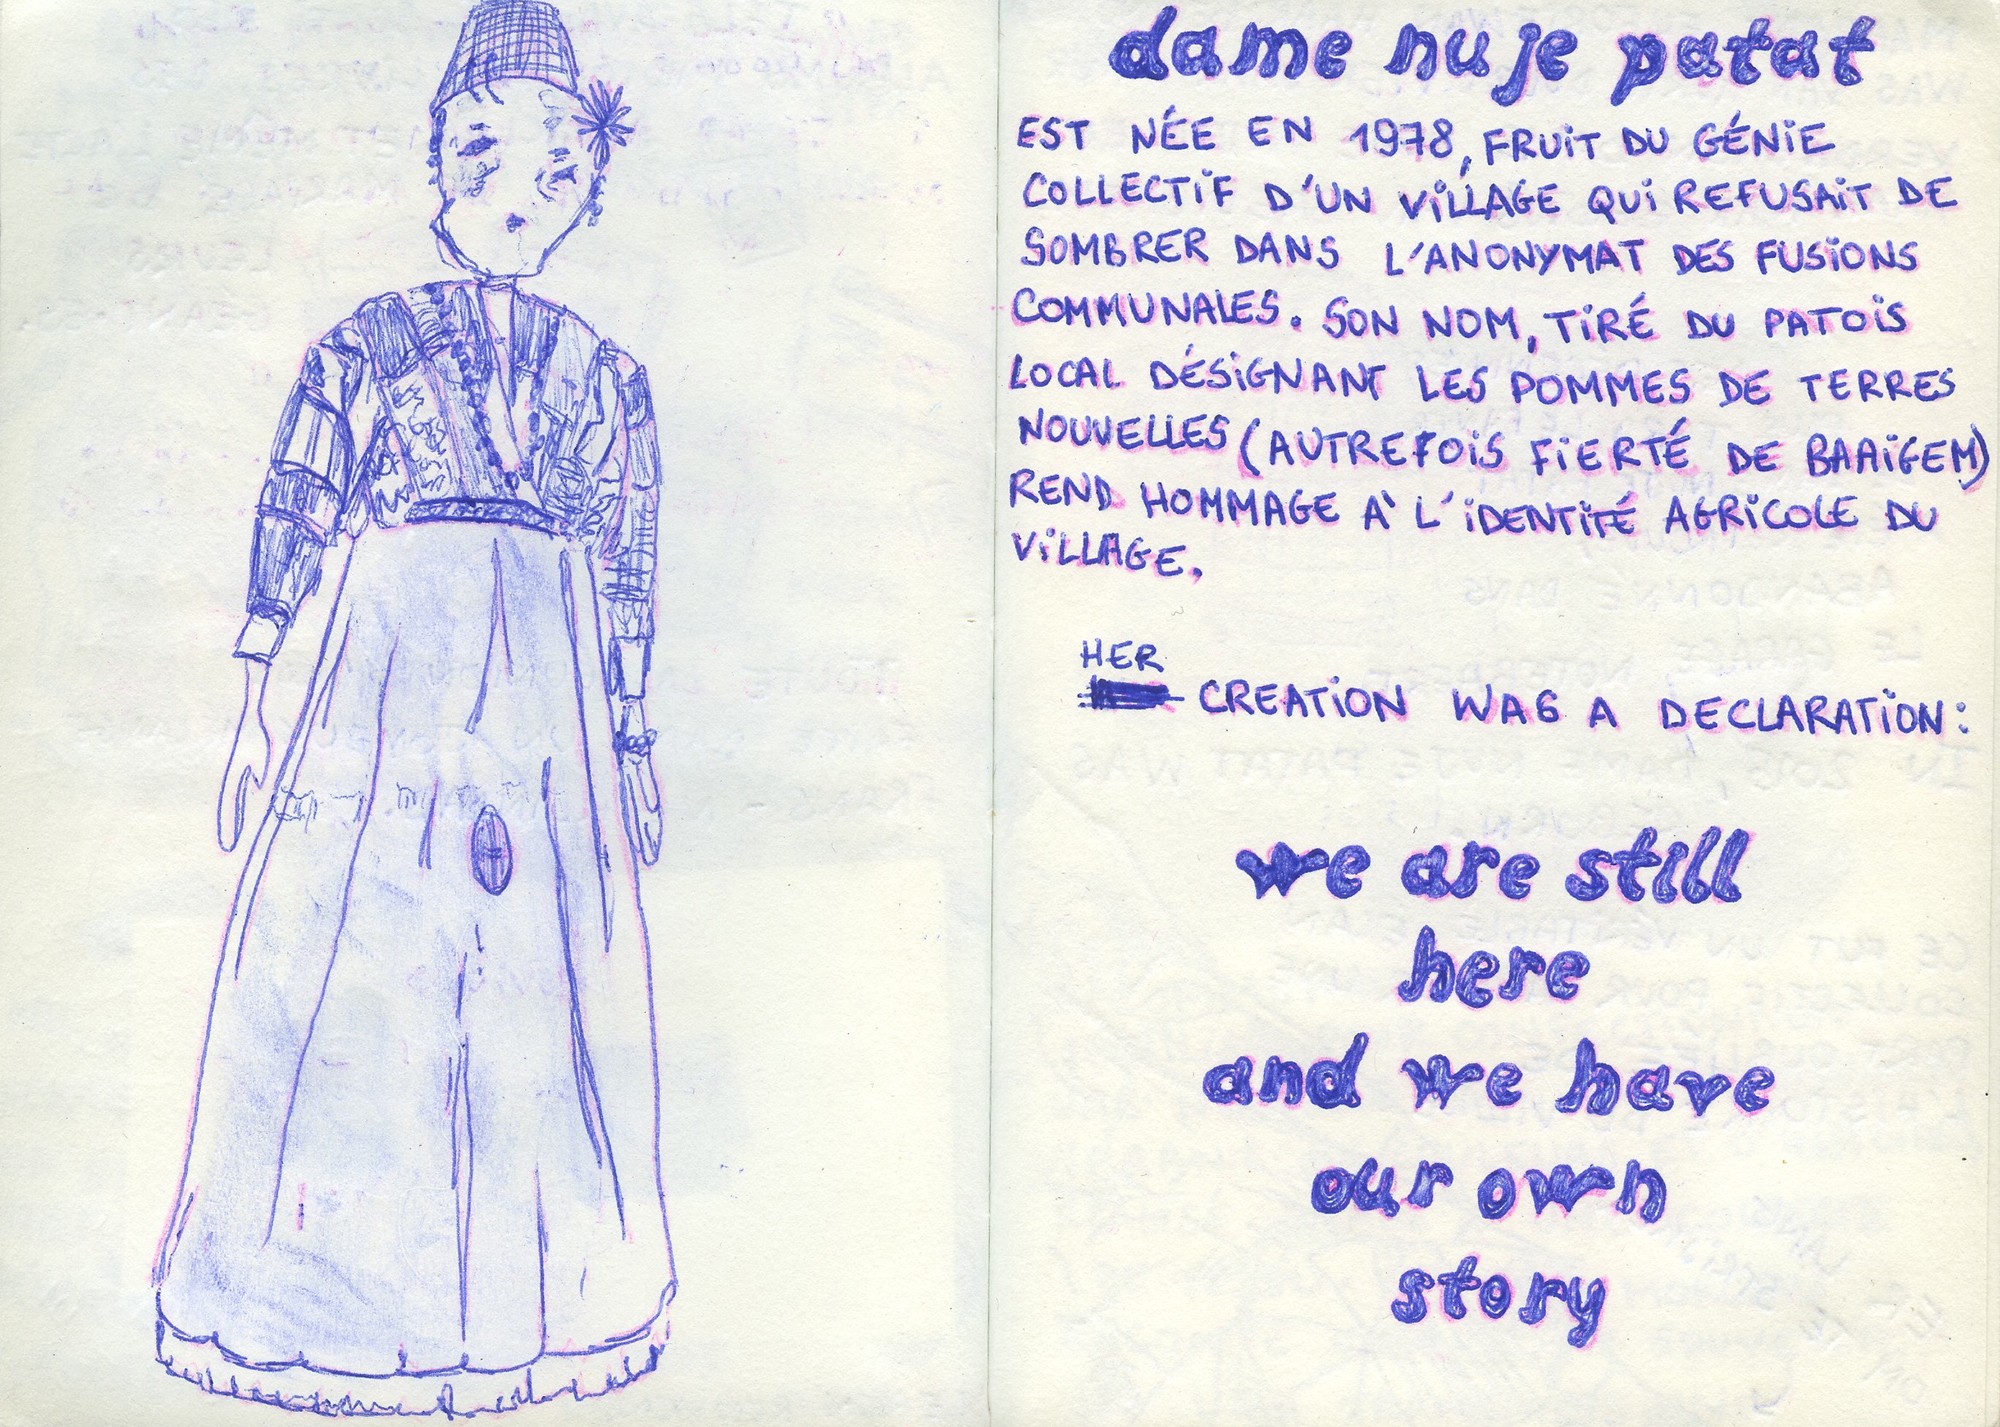 dame nu je patat
EST NÉE EN 1978, FRUIT DU GÉNIE
COLLECTIF D'UN VILLAGE QUI REFUSAIT DE
SOMBRER DANS L'ANONYMAT DES FUSIONS
COMMUNALES. SON NOM, TIRÉ DU PATOIS
LOCAL DÉSIGNANT LES POMMES DE TERRES
NOUVELLES (AUTREFOIS FIERTÉ DE BAAIGEM)
REND HOMMAGE À L'IDENTITÉ AGRICOLE DU
VILLAGE.
HER
CREATION WAS A DECLARATION:
we are still
here
and we have
our own
story